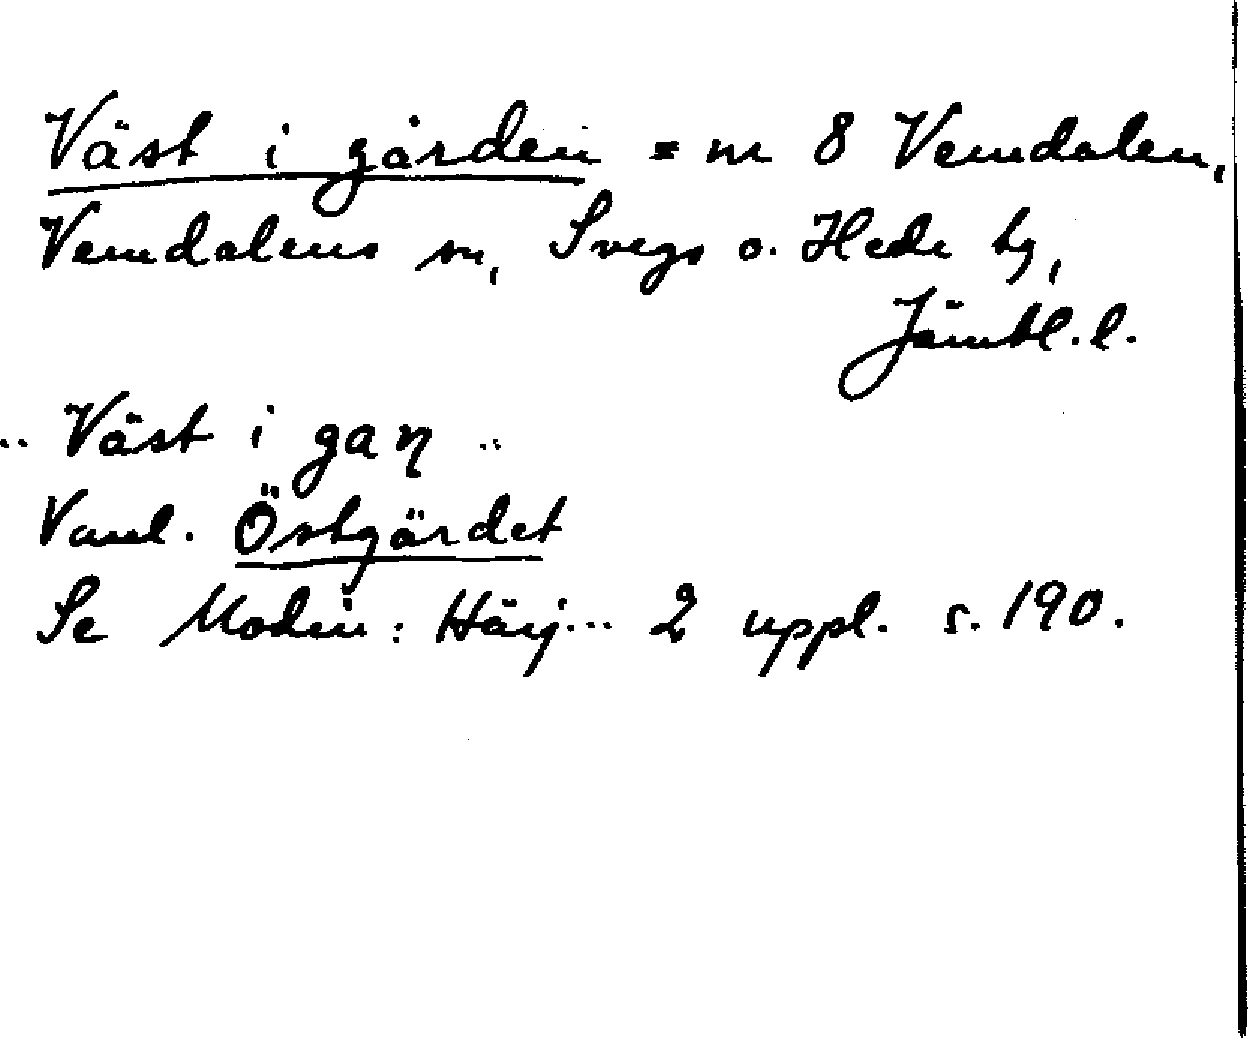 Väst i gården = nr 8 Vemdalen,
Vemdalens sn, Svegs o. Hede tg,
Jämtl. l.
.. Väst i gaṇ ..
Vanl. Östgärdet
Se Modin: Härj... 2 uppl. s. 190.